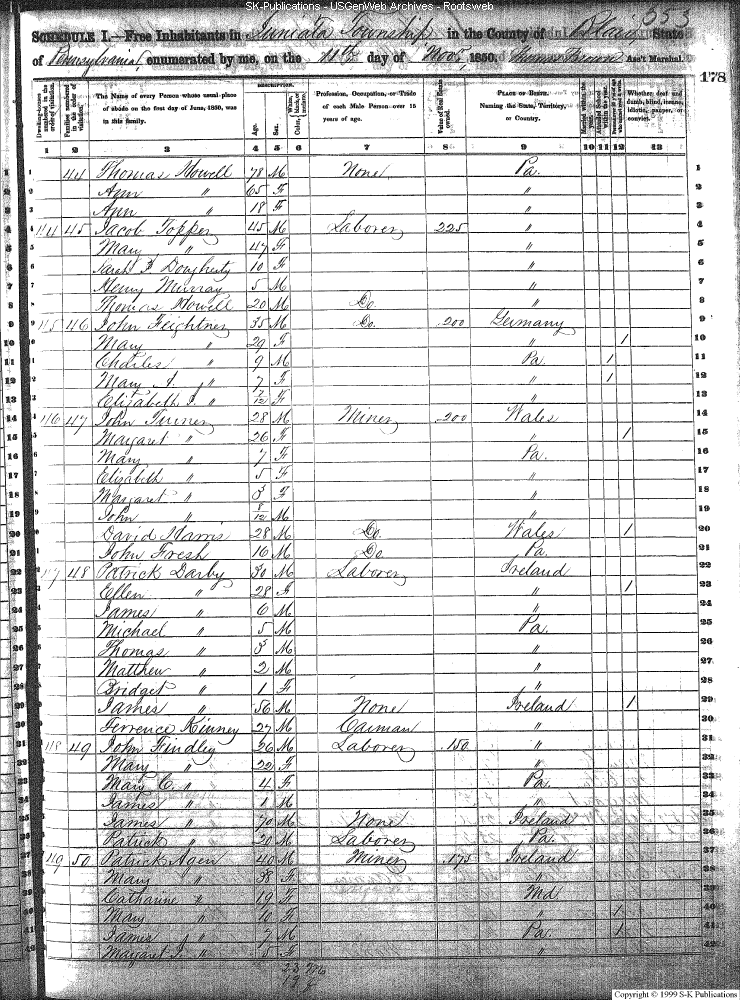 SK-Publications - USGenWeb Archives - Rootsweb
553
SCHEDULE I.—Free Inhabitants in Juniata Township in the County of Blair State
of Pennsylvania, enumerated by me, on the 11th day of Novr, 1850. Thomas Brown Ass't Marshal.
178
Dwelling-houses numbered in the order of visitation.
Families numbered in the order of visitation.
The Name of every Person whose usual place of abode on the first day of June, 1850, was in this family.
DESCRIPTION.
Age.
Sex.
Color, White, black, or mulatto.
Profession, Occupation, or Trade of each Male Person over 15 years of age.
Value of Real Estate owned.
PLACE OF BIRTH. Naming the State, Territory, or Country.
Married within the year.
Attended School within the year.
Whether deaf and dumb, blind, insane, idiotic, pauper, or convict.
1 2 3 4 5 6 7 8 9 10 11 12 13
1 44 Thomas Howell 78 M None Pa. 1
2 Ann " 65 F " 2
3 Ann " 18 F " 3
4 114 45 Jacob Topper 45 M Laborer 225 " 4
5 Mary " 47 F " 5
6 Dougherty 10 F " 6
7 Henry Murray 5 M " 7
8 Thomas Howell 20 M Do. " 8
9 115 46 John Feightner 35 M Do. 200 Germany 9
10 Mary " 29 F " / 10
11 Charles " 9 M Pa / 11
12 Mary A. " 7 F " / 12
13 Elizabeth J. " 7/12 F " 13
14 116 47 John Turner 28 M Miner 200 Wales 14
15 Margaret " 26 F " / 15
16 Mary " 7 F Pa. 16
17 Elisabeth " 5 F " 17
18 Margaret " 3 F " 18
19 John " 8/12 M " 19
20 David Harris 28 M Do. Wales / 20
21 John Fresh 16 M Do Pa 21
22 117 48 Patrick Darby 30 M Laborer Ireland 22
23 Ellen " 28 F " / 23
24 James " 6 M " 24
25 Michael " 5 M Pa. 25
26 Thomas " 3 M " 26
27 Matthew " 2 M " 27
28 Bridget " 1 F " 28
29 James " 56 M None Ireland / 29
30 Terrence Kinney 27 M Carman " 30
31 118 49 John Findley 26 M Laborer 150 " 31
32 Mary " 22 F " 32
33 Mary C. " 4 F Pa. 33
34 James " 1 M " 34
35 James " 70 M None Ireland 35
36 Patrick " 20 M Laborer Pa. 36
37 119 50 Patrick Agen 40 M Miner 175 Ireland 37
38 Mary " 38 F " 38
39 Catharine " 19 F Md 39
40 Mary " 10 F " / 40
41 James " 7 M Pa. / 41
42 Margaret J. " 5 F " 42
Copyright © 1999 S-K Publications